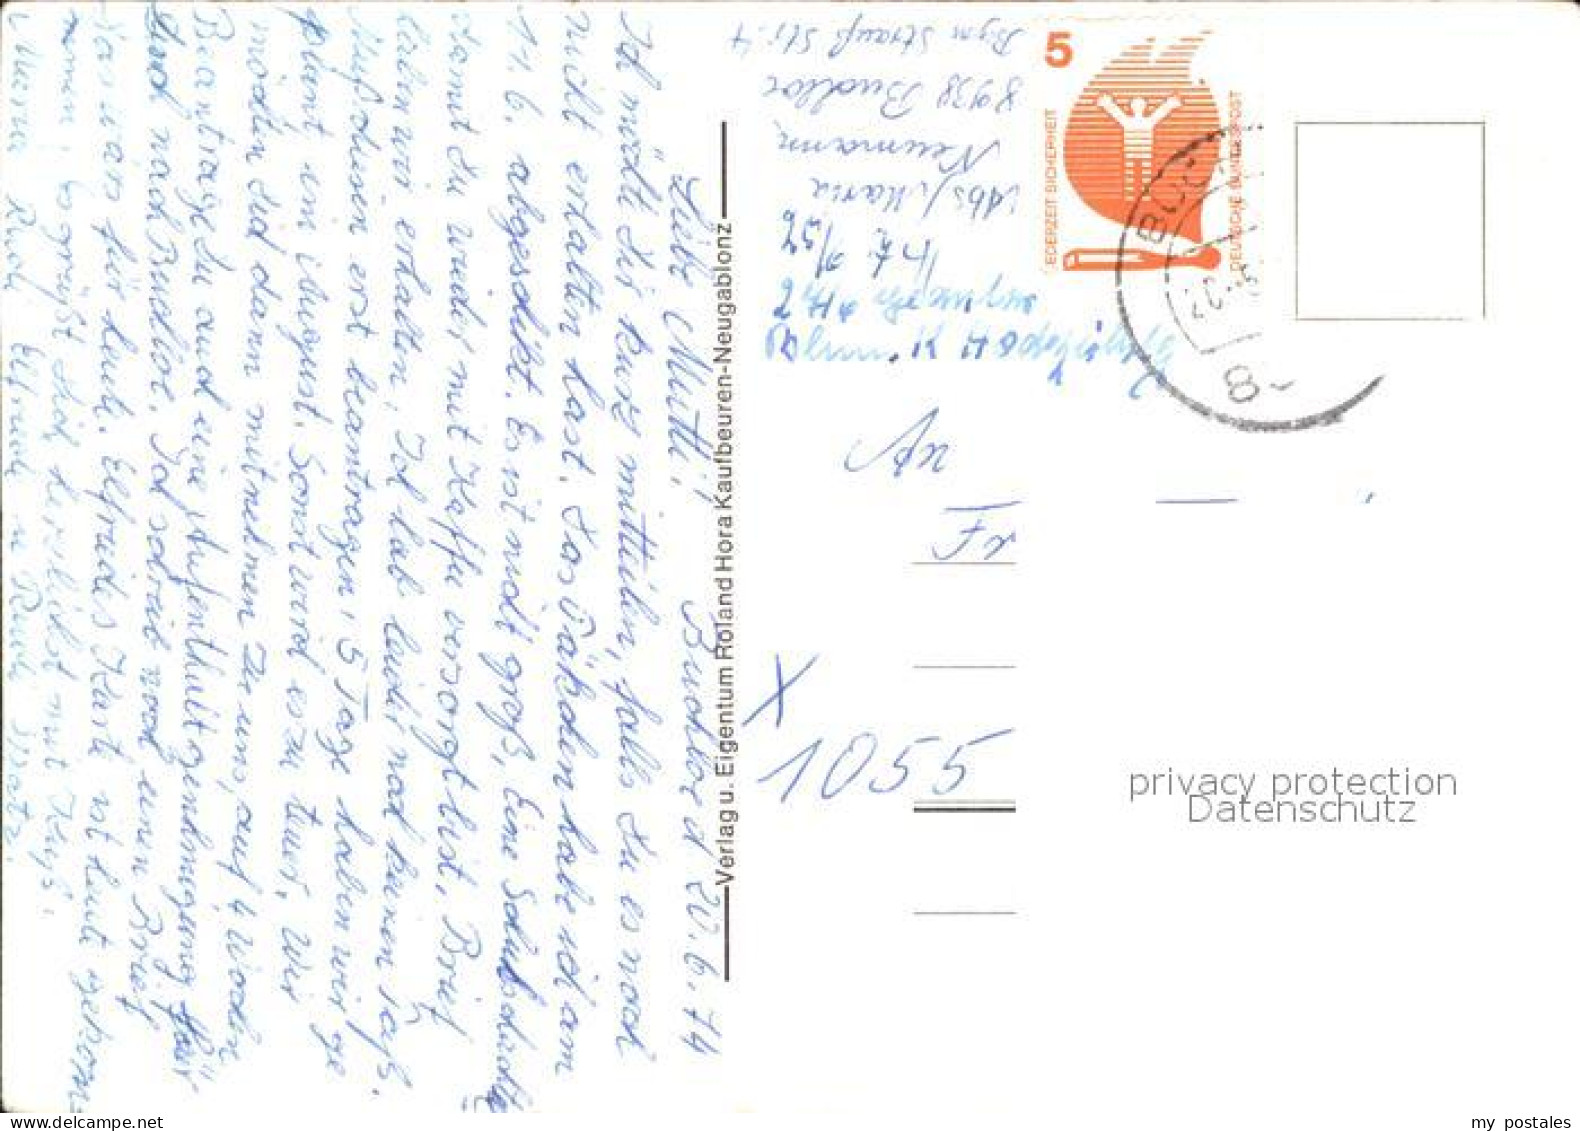 Liebe Mutti! Buchloe d 20.6.74
Ich möchte Dir kurz mitteilen, falls Du es noch
nicht erhalten hast. Das Päkchen habe ich am
11.6. abgeschikt. Es ist nicht groß, Eine Schuhschachtel
damit Du wieder mit Kaffe versorgt bist. Brief
haben wir erhalten, Ich hab leider noch keinen Paß.
Muß diesen erst beantragen, 5 Tage haben wir ge
plant im August. Sonst wird es zu teuer. Wir
möchten Dich dann mitnehmen zu uns, auf 4 Wochen
Beantrage Du auch eine Aufenthaltgenehmigung für
Dich nach Buchloe. Ich schreib noch einen Brief
Das wärs für heute. Elfriedes Karte ist heute gekom-
men, es grüßt Dich herzlichst mit Kuß,
Maria Rudi Elfriede u Rudi
Verlag u. Eigentum Roland Hora Kaufbeuren-Neugablonz
Abs. Maria
Neumann
8938 Buchloe
Strauß Str. 4
5
JEDERZEIT SICHERHEIT
DEUTSCHE BUNDESPOST
An
Fr
X
1055
privacy protection
Datenschutz
my postales